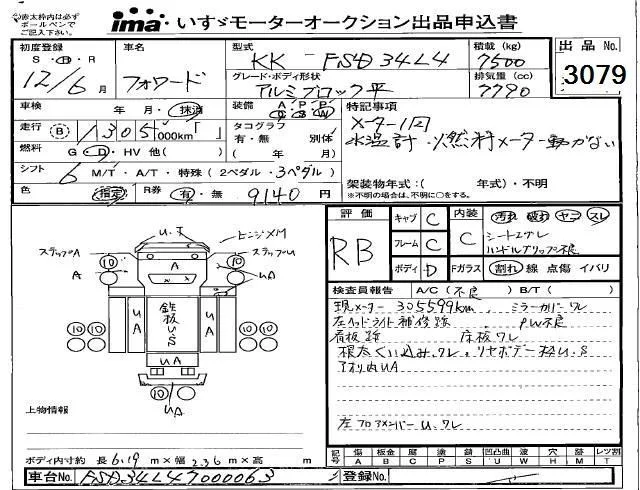 ◎赤太枠内は必ず
ボールペンで
ご記入下さい。
ima いすゞモーターオークション出品申込書
初度登録 S・H・R 12/6 月
車名 フォワード
型式 KK-FSD34L4
積載 (kg) 7500
出品 No. 3079
グレード・ボディ形状 アルミブロック平
排気量 (cc) 7790
車検 年 月・抹消
装備 A C P S P W
特記事項
メーター1回
水温計・燃料メーター動かない
走行 B 1305 000km「 」
タコグラフ 有・無 別体
( 年 月)
燃料 G・D・HV 他( )
シフト 6 M/T・A/T・特殊 (2ペダル・3ペダル)
架装物年式:( 年式)・不明
※不明の場合は、不明に○をする。
色 指定 R券 有・無 9140 円
評価 RB
キャブ C
フレーム C
ボディ D
内装 C
汚れ 破れ ヤコ スレ
シートエグレ
ハンドルグリップ不良
Fガラス 割れ 線 点傷 イバリ
検査員報告 A/C(不良) B/T( )
現メーター 305599km ミラーカバーワレ
左ヘッドライト補修跡 PW不良
看板跡 床板ワレ
根太くい込み、ワレ、リヤボデー枠U、S
アオリ内UA
左フロアメンバーU、ワレ
U、S
ヒンジXM
ステップA
ステップU
10
A
A
UA
10
UA
鉄板U、S
UA
10 10
10 10
UA
10
UA
上物情報
ボディ内寸約 長 6.19 m×幅 2.36 m×高 m
記号 傷 A 板金 B 腐 C 塗 P 錆 S 凹凸曲 U 波 W 穴 H 外 M レツ割 T
車台No. FSD34L4 7000063
登録No.